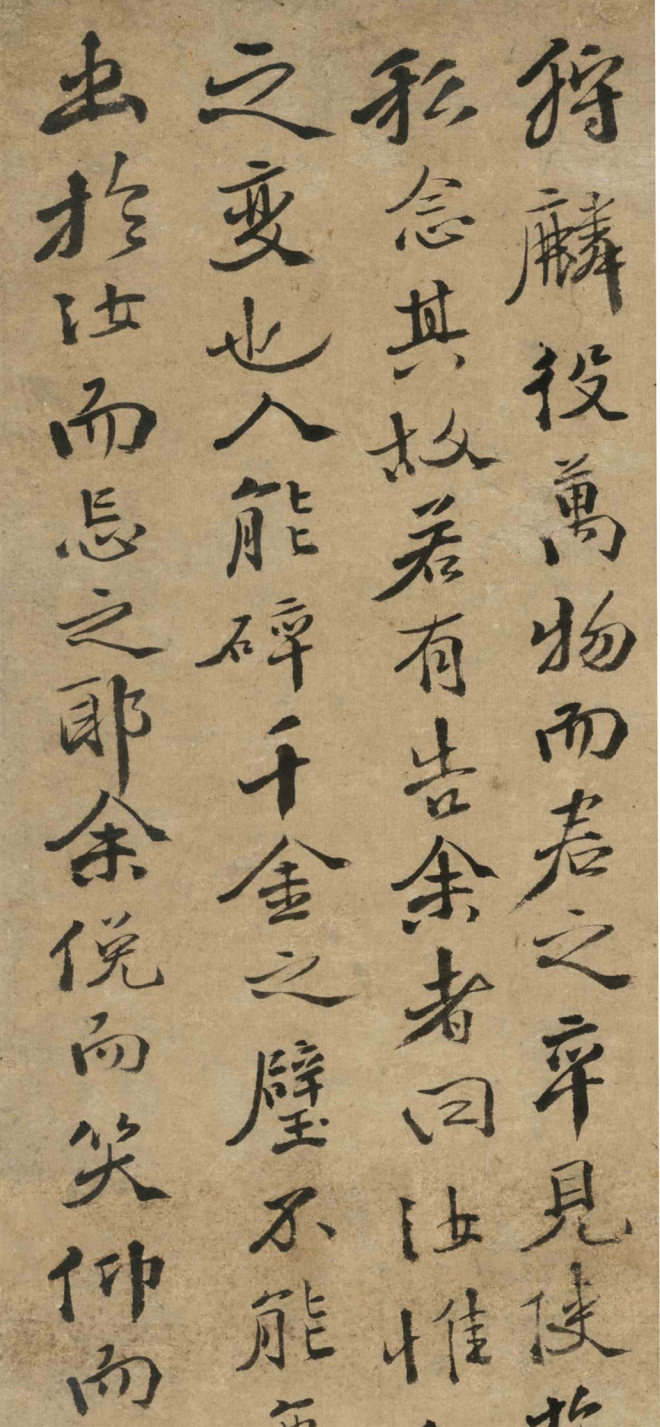 狩麟役萬物而君之卒見使
私念其故若有告余者曰汝惟
之變也人能碎千金之璧不能
出於汝而忘之耶余俛而笑仰而